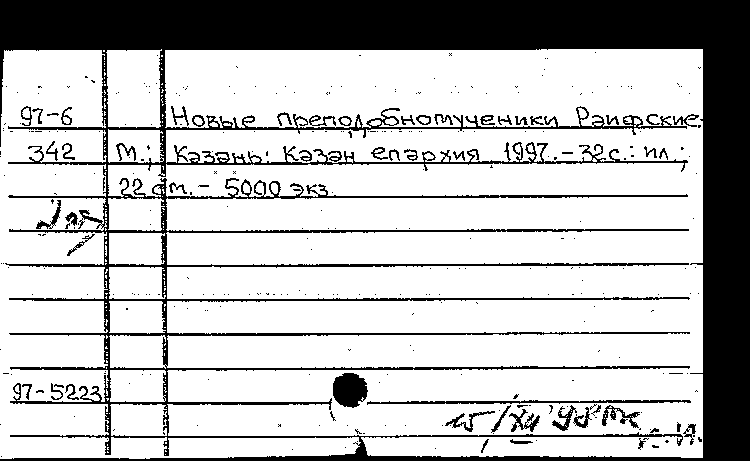 97-6 Новые преподобномученики Раифские.
342 М.; Казань: Казан епархия, 1997.-32с.: ил.;
22 cm. - 5000 экз.
97-5223
15/XII 98